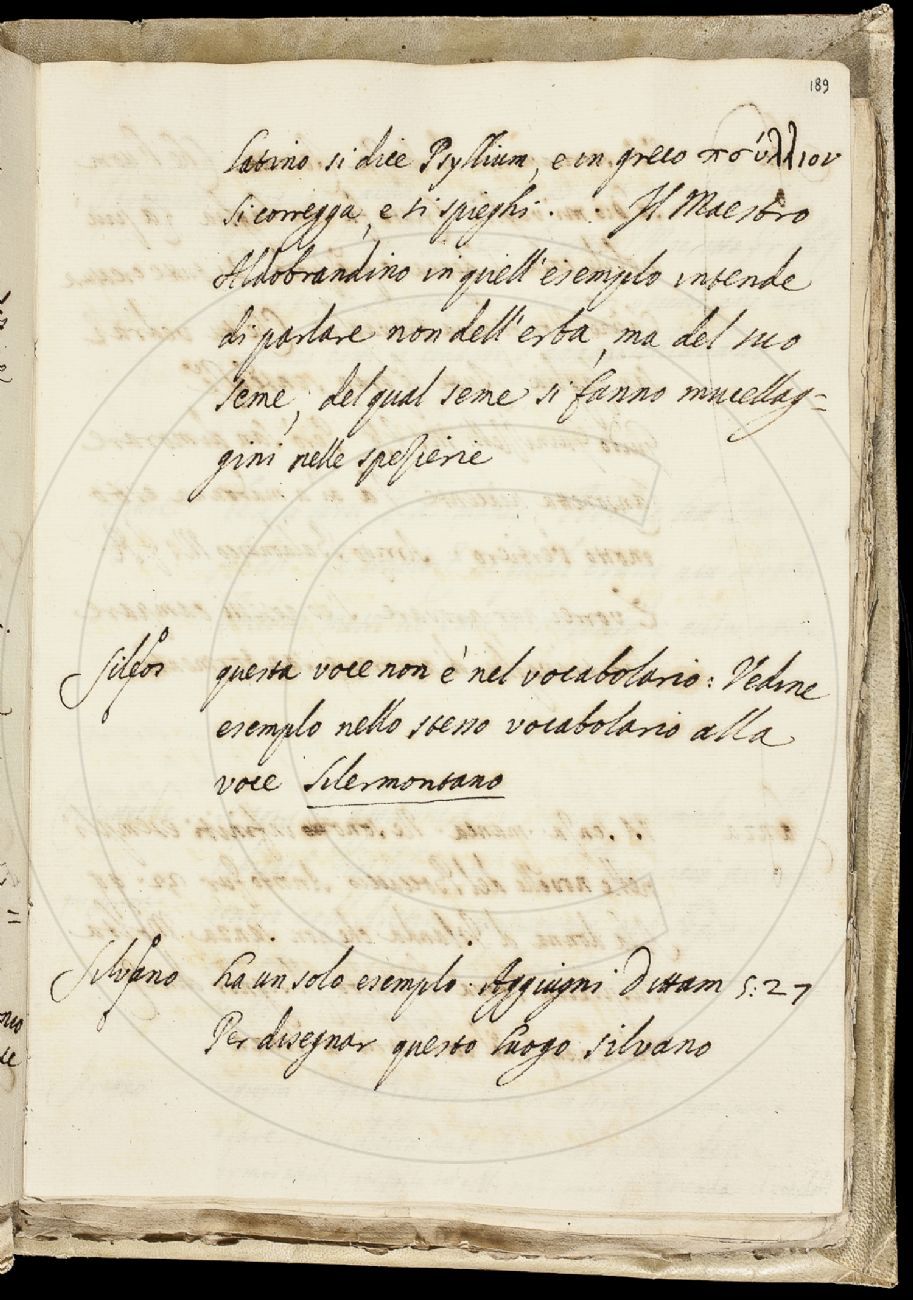 189
Latino si dice Psyllium, e in greco πσύλλιον
si corregga, e si spieghi. Il Maestro
Aldobrandino in quell'esemplo intende
di parlare non dell'erba, ma del suo
seme, del qual seme si fanno mucellag=
gini nelle spezierie
questa voce non è nel vocabolario: Vedine
esemplo nello stesso vocabolario alla
voce Silermontano
Silvano ha un solo esemplo. Aggiugni Dittam 5:27
Per disegnar questo luogo silvano